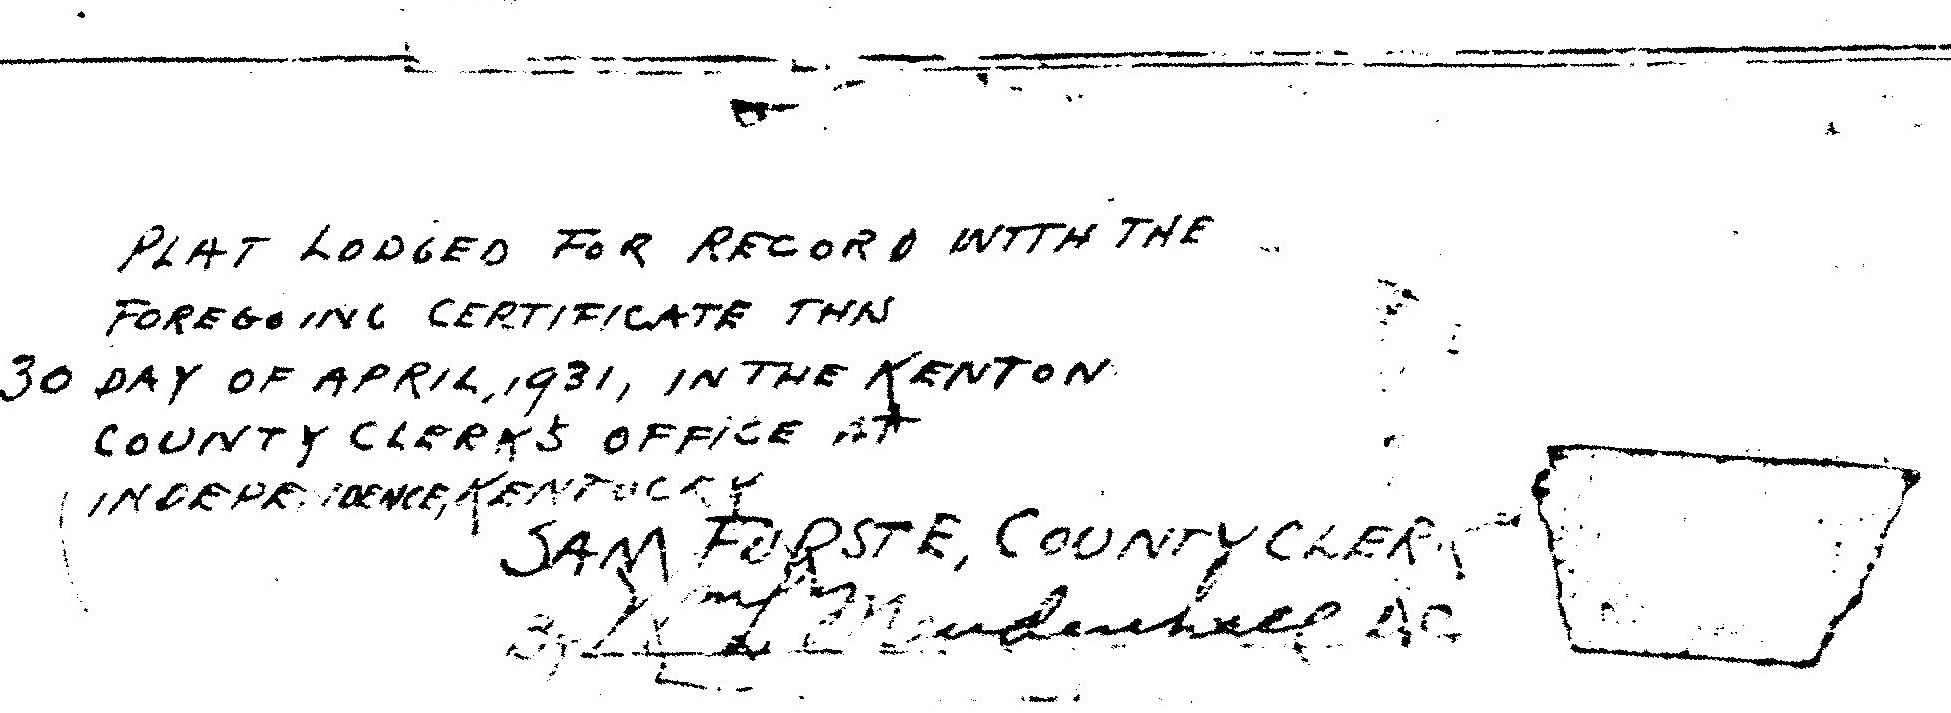 PLAT LODGED FOR RECORD WITH THE
FOREGOING CERTIFICATE THIS
30 DAY OF APRIL, 1931, IN THE KENTON
COUNTY CLERK'S OFFICE AT
INDEPENDENCE, KENTUCKY
SAM FURSTE, COUNTY CLERK
By Mendenhall D.C.